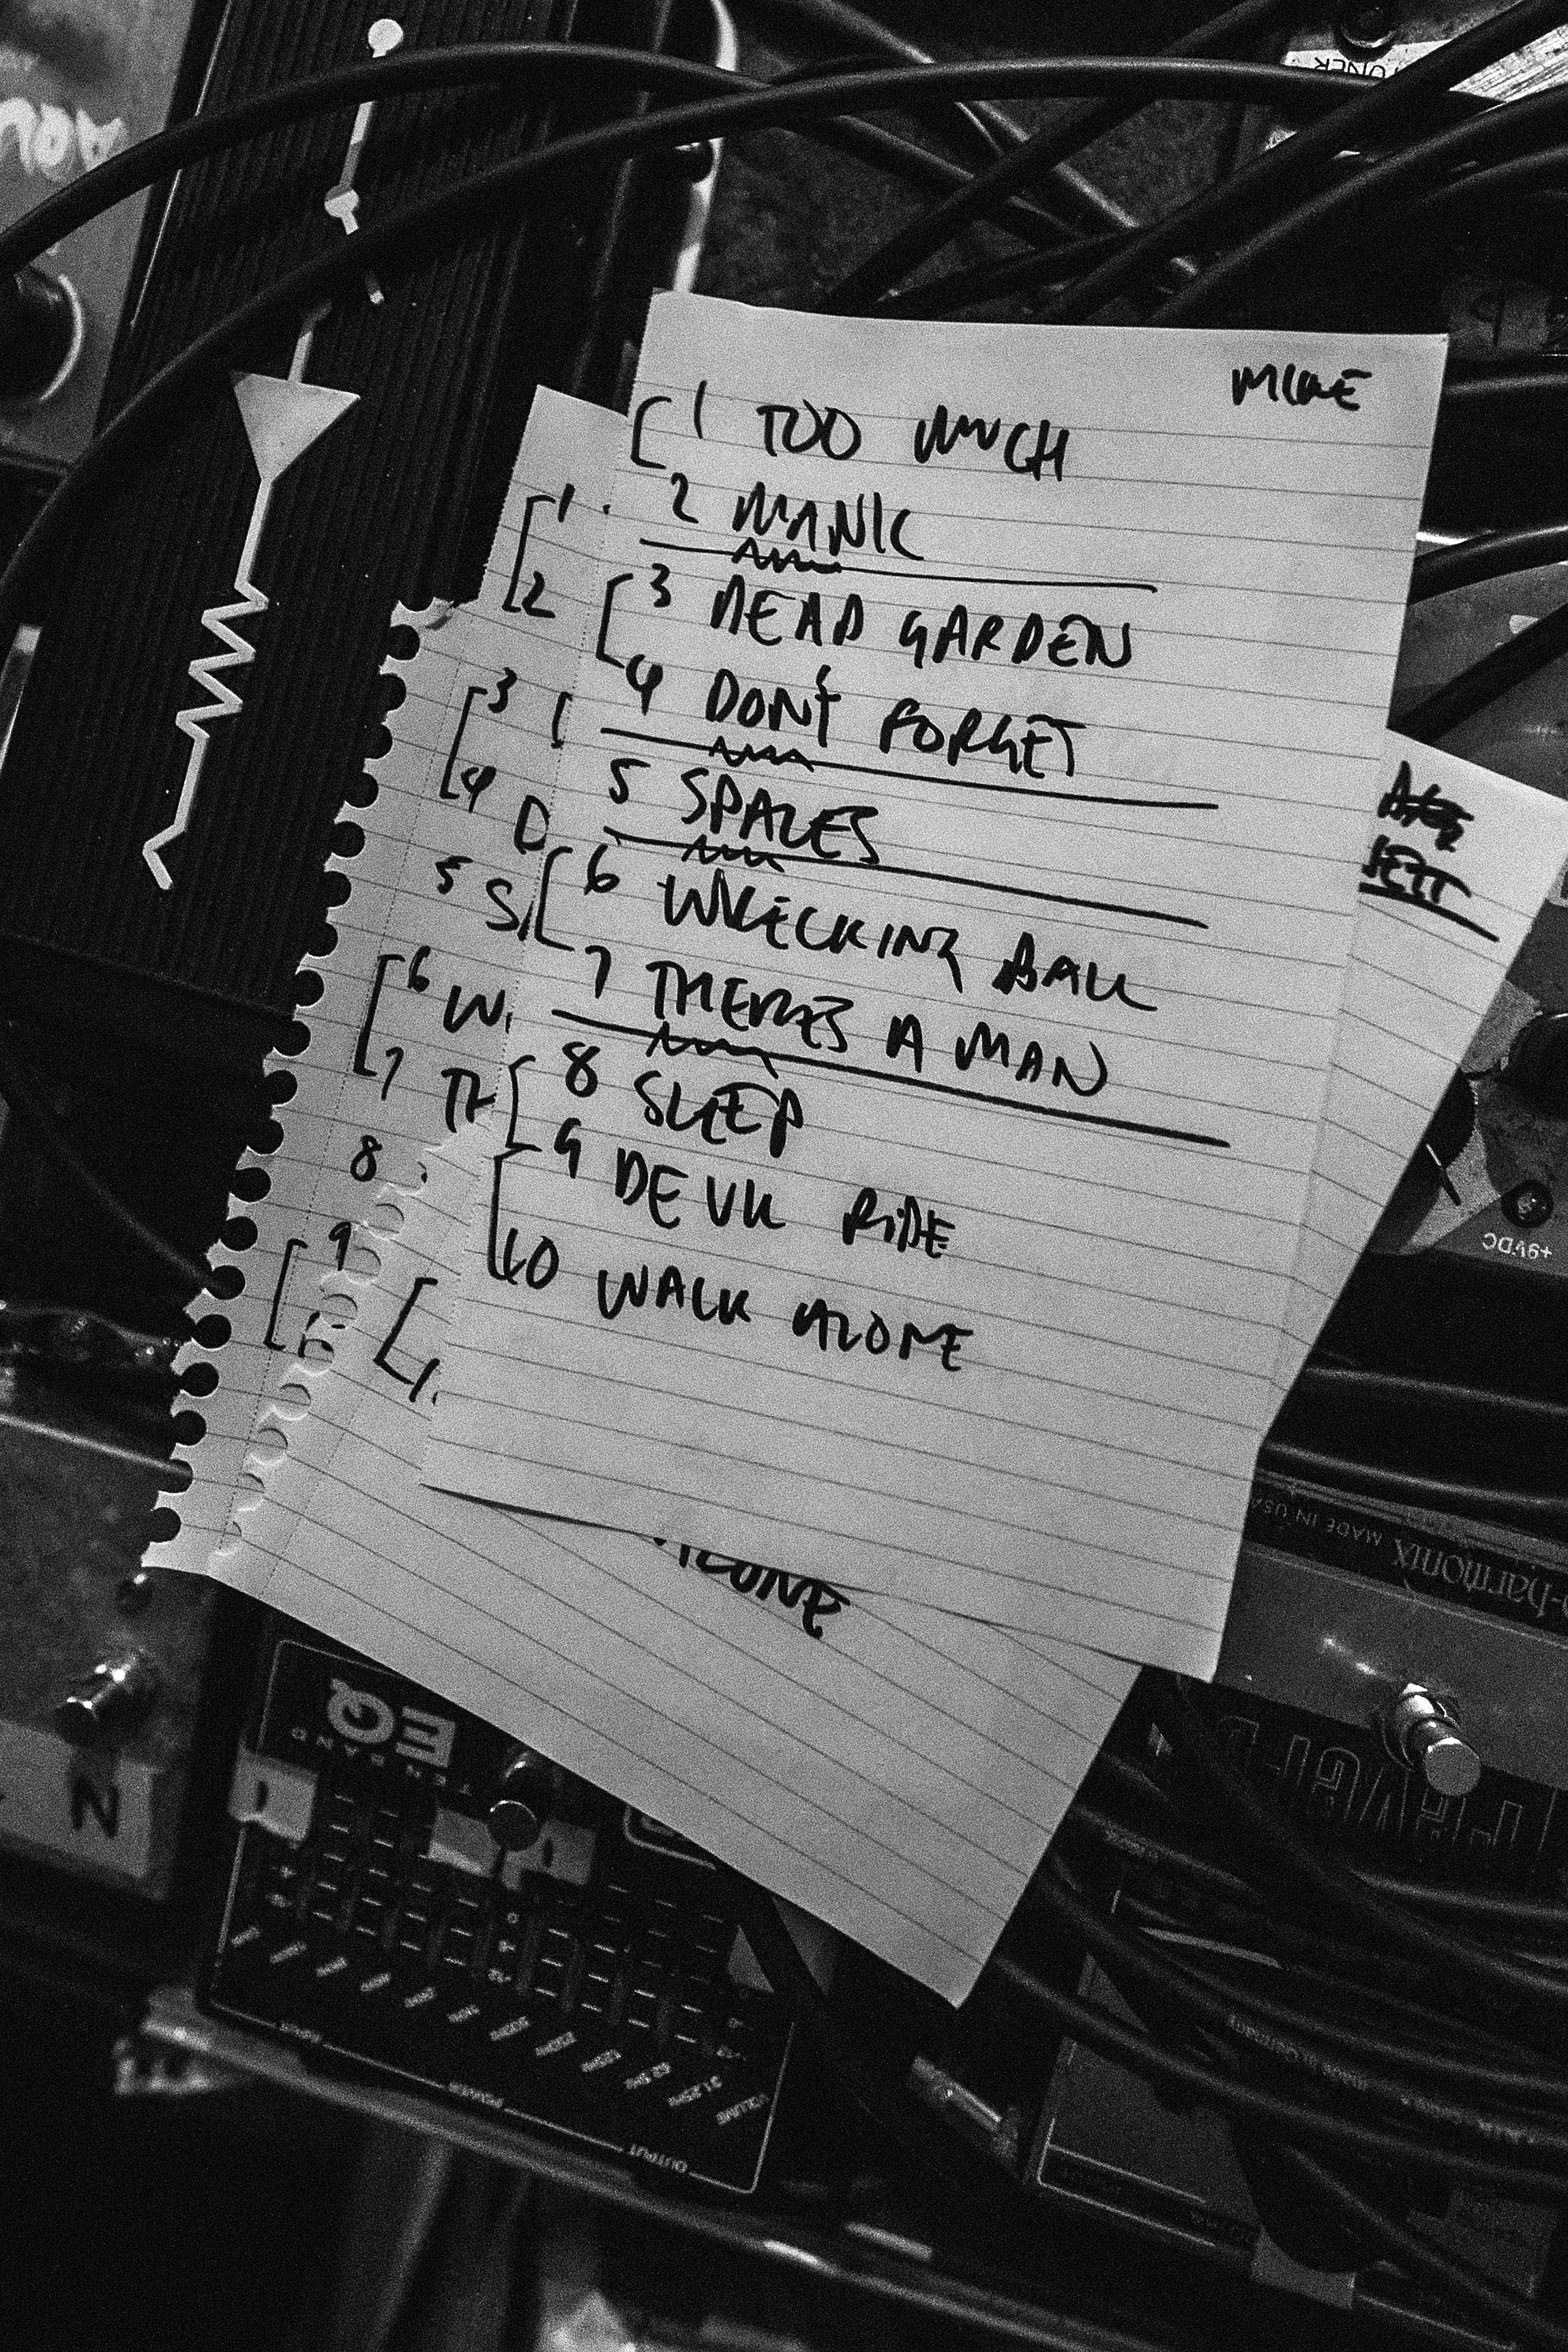 MIKE
1 TOO MUCH
2 MANIC
3 DEAD GARDEN
4 DON'T FORGET
5 SPACES
6 WRECKING BALL
7 THERES A MAN
8 SLEEP
9 DEVIL RIDE
10 WALK ALONE
1
2
3
4 D
5 S
6 W
7 TH
8
9
ALONE
+9VDC
harmonix
MADE IN USA
EQ
TEN BAND
N
VOLUME
POWER
OUTPUT